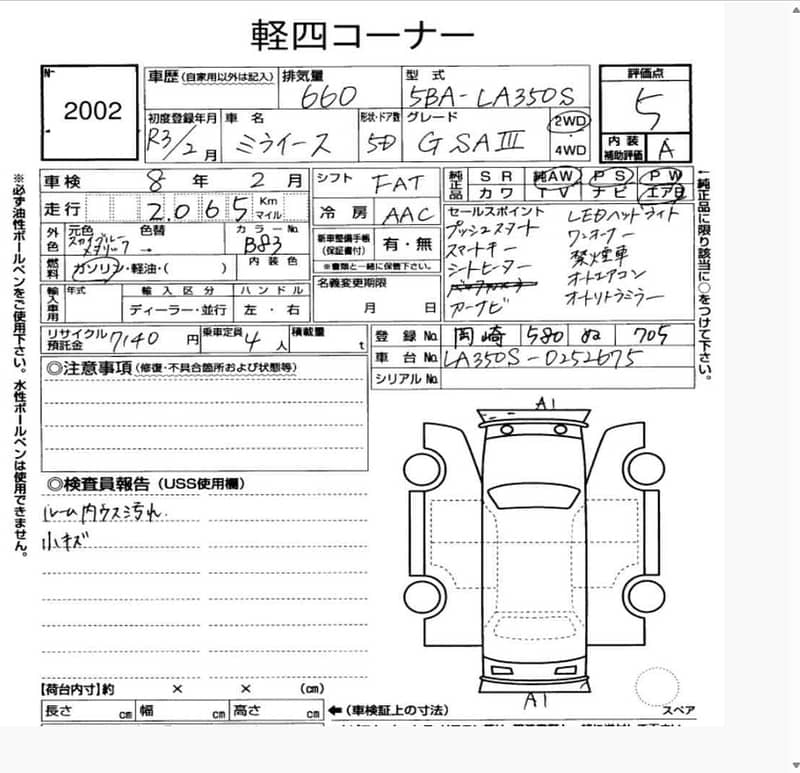 軽四コーナー
№
2002
車歴(自家用以外は記入)
排気量
660
型 式
5BA-LA350S
評価点
5
初度登録年月
R3/2月
車 名
ミライース
形状・ドア数
5D
グレード
G SAⅢ
2WD
・
4WD
内 装
補助評価
A
車検 8 年 2 月
シフト FAT
純正品
SR 純AW PS PW
カワ TV ナビ エアB
走行 2.065 Km マイル
冷 房 AAC
外色
元色
スカイブルーメタリック →
色替
カラーNo.
B83
内 装 色
新車整備手帳
(保証書付)
有・無
※書類と一緒に保管下さい。
セールスポイント
プッシュスタート
スマートキー
シートヒーター
カーナビ
LEDヘッドライト
ワンオーナー
禁煙車
オートエアコン
オートリトラミラー
燃料
ガソリン・軽油・( )
名義変更期限
月 日
輸入車用
年式
輸 入 区 分
ディーラー・並行
ハ ン ド ル
左 ・ 右
リサイクル
預託金
7140 円
乗車定員
4 人
積載量
t
登 録 No. 岡崎 580 ぬ 705
車 台 No. LA350S-0252675
シリアル No.
◎注意事項(修復・不具合箇所および状態等)
◎検査員報告(USS使用欄)
ルーム内ウス汚れ.
小キズ
A1
A1
スペア
【荷台内寸】約 × × (cm)
長さ cm 幅 cm 高さ cm
←(車検証上の寸法)
※必ず油性ボールペンをご使用下さい。水性ボールペンは使用できません。
純正品に限り該当に○をつけて下さい。